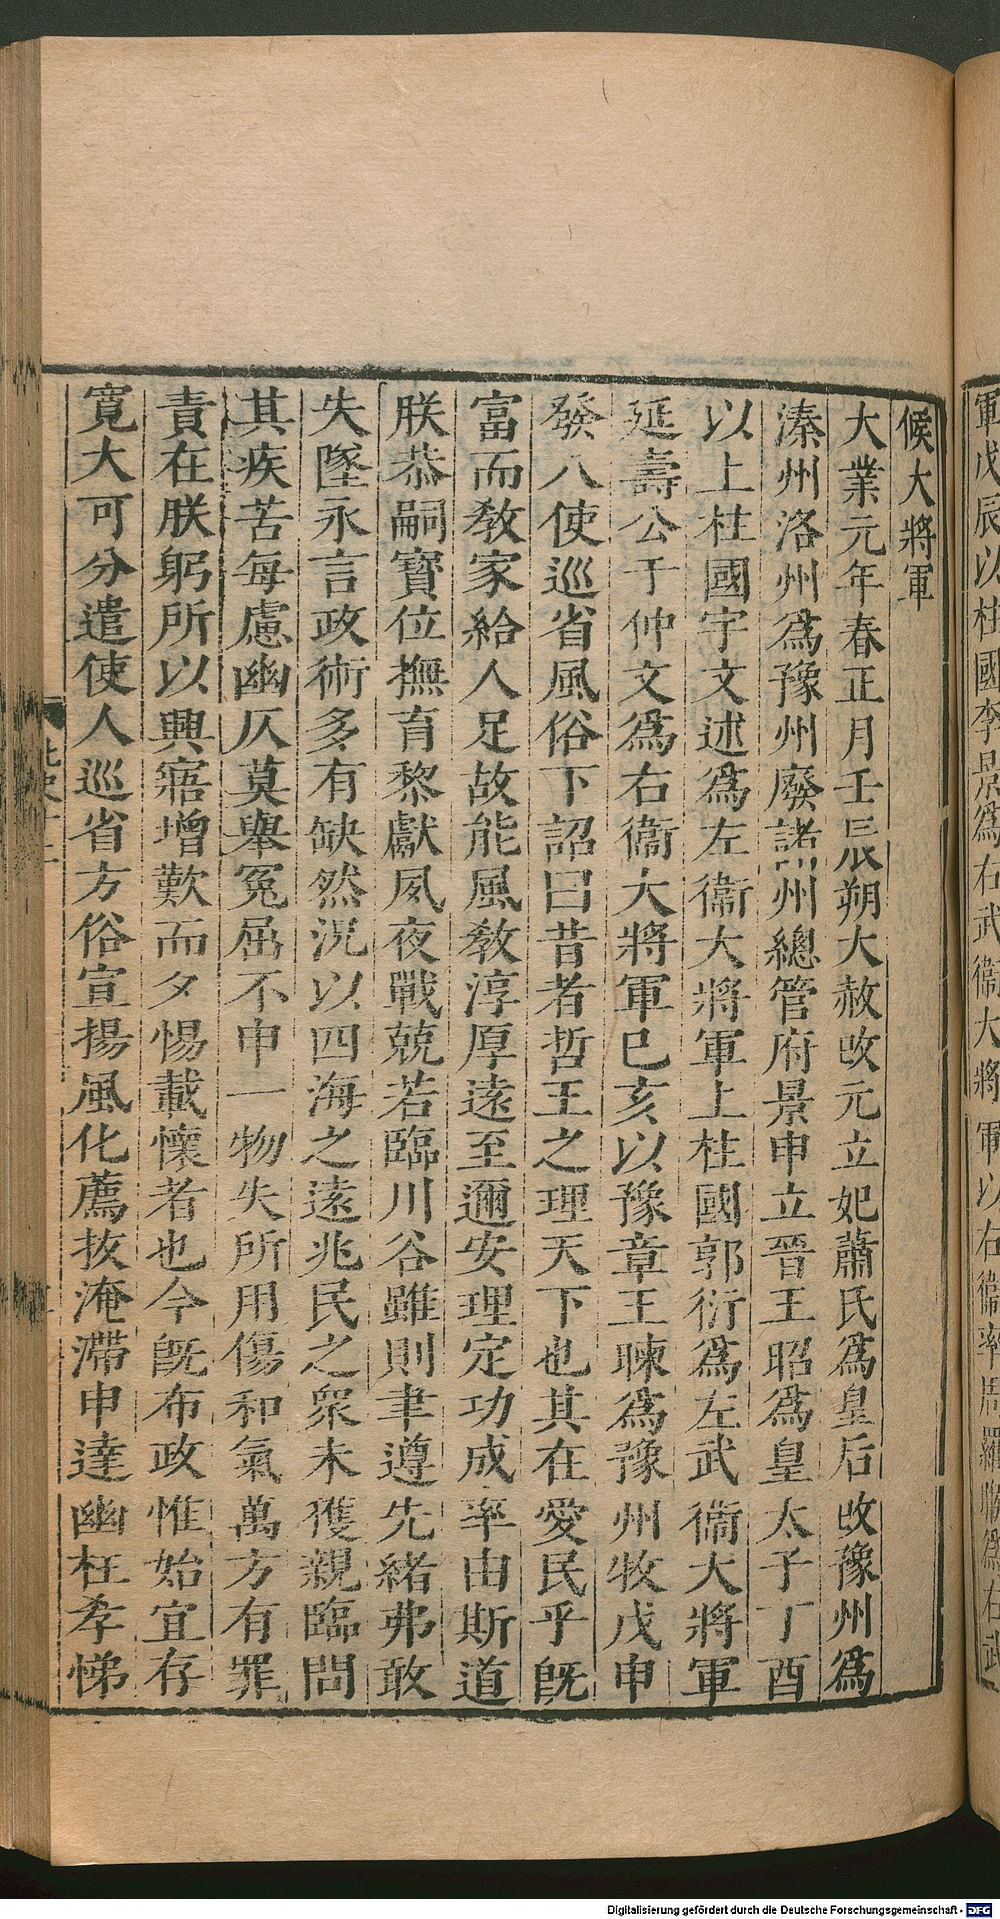 軍戊辰以柱國李景爲右武衞大將軍以右衞率周羅睺爲右武
候大將軍
大業元年春正月壬辰朔大赦改元立妃蕭氏爲皇后改豫州爲
溱州洛州爲豫州廢諸州總管府景申立晉王昭爲皇太子丁酉
以上柱國宇文述爲左衞大將軍上柱國郭衍爲左武衞大將軍
延壽公于仲文爲右衞大將軍巳亥以豫章王暕爲豫州牧戊申
發八使巡省風俗下詔曰昔者哲王之理天下也其在愛民乎旣
富而敎家給人足故能風敎淳厚遠至邇安理定功成率由斯道
朕恭嗣寶位撫育黎獻夙夜戰兢若臨川谷雖則聿遵先緒弗敢
失墜永言政術多有缺然況以四海之遠兆民之衆未獲親臨問
其疾苦每慮幽仄莫舉寃屈不申一物失所用傷和氣萬方有罪
責在朕躬所以興寤增歎而夕惕載懷者也今旣布政惟始宜存
寬大可分遣使人巡省方俗宣揚風化薦拔淹滯申達幽枉孝悌
Digitalisierung gefördert durch die Deutsche Forschungsgemeinschaft - DFG